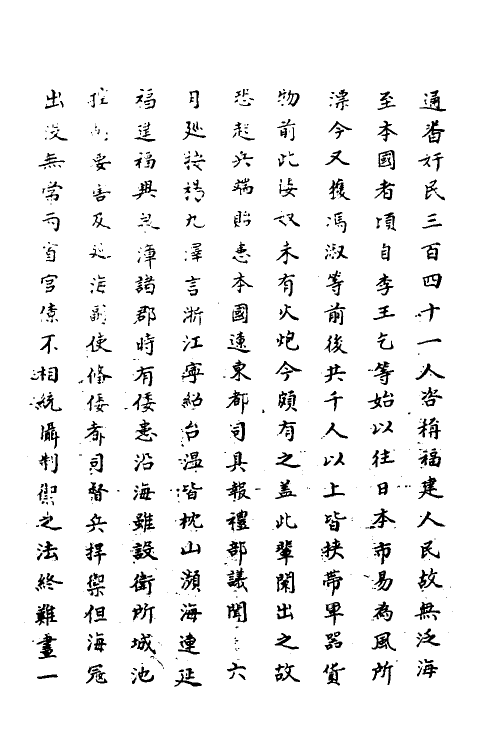 通番奸民三百四十一人咨稱福建人民故無泛海
至本國者頃自李王乞等始以往日本市易為風所
漂今又獲馮淑等前後共千人以上皆挾帶軍器貨
物前此倭奴未有火炮今頗有之蓋此輩闌出之故
恐起兵端貽患本國遼東都司具報禮部議聞 六
月巡按楊九澤言浙江寧紹台溫皆枕山瀕海連延
福建福興泉漳諸郡時有倭患沿海雖設衛所城池
控制要害及巡海副使備倭都司督兵捍禦但海冦
出沒無常而省官僚不相統攝制禦之法終難畫一